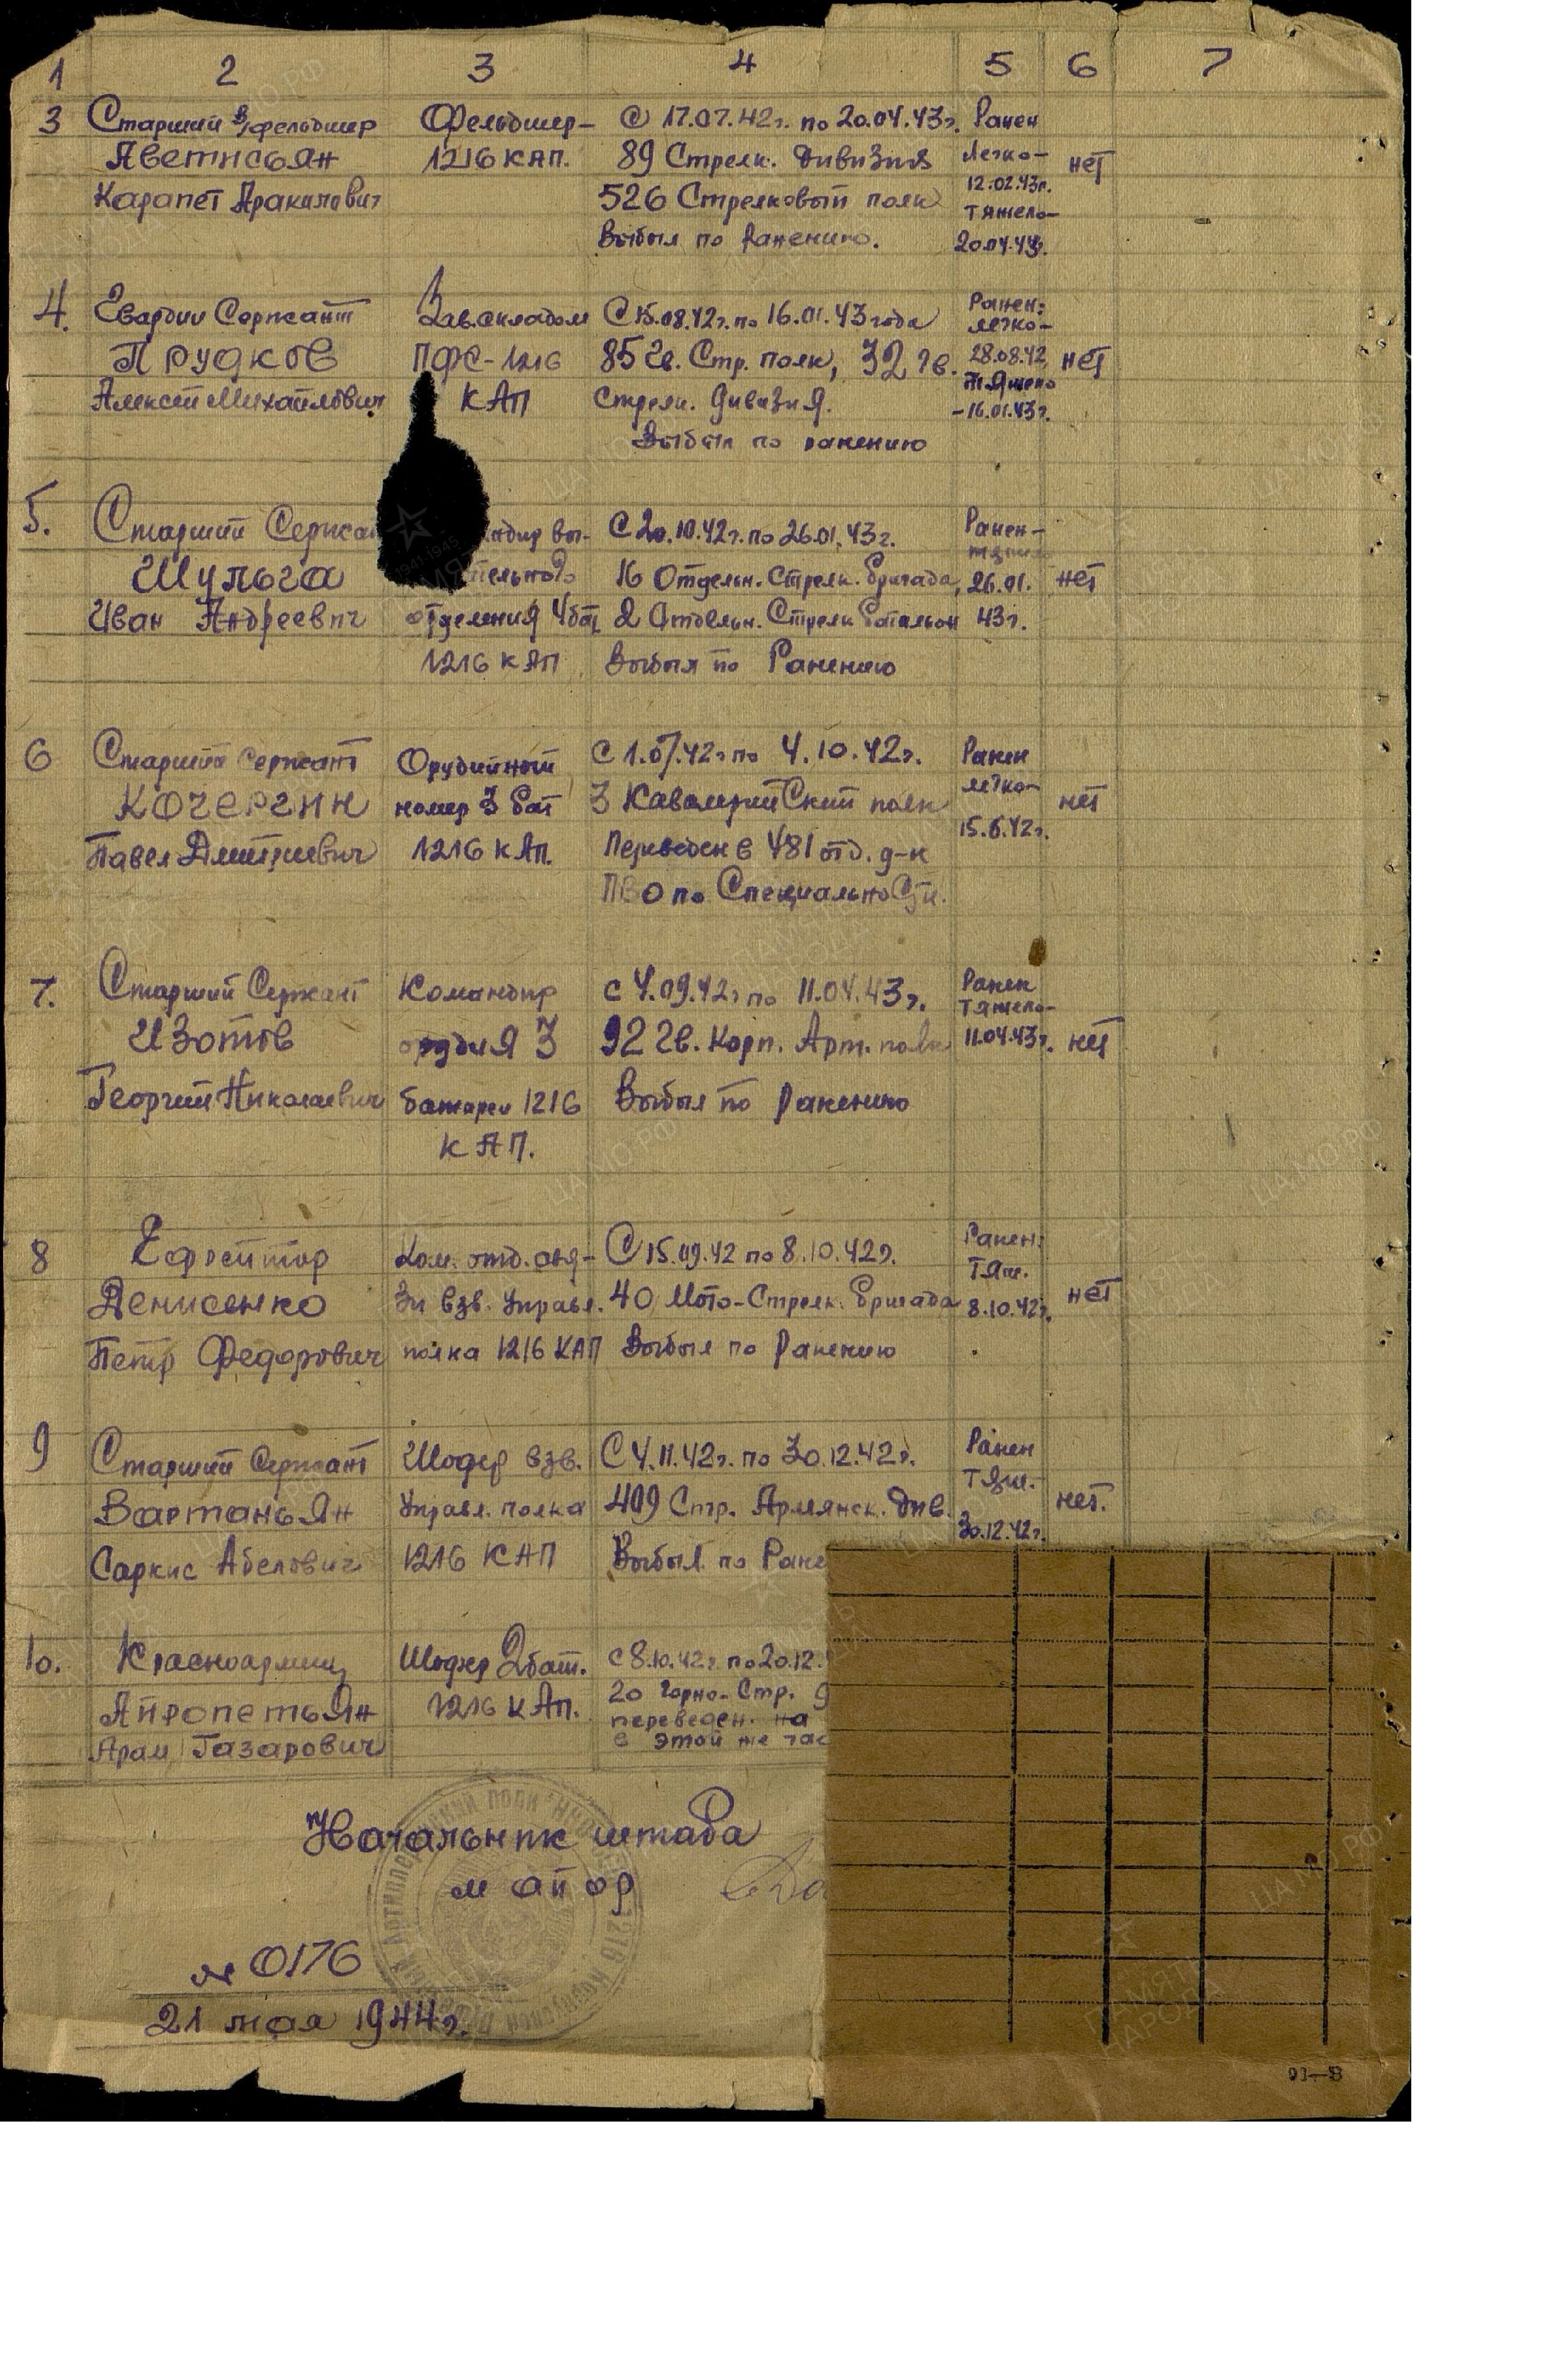 1 2 3 4 5 6 7
3 Старший в/фельдшер Фельдшер- С 17.07.42г. по 20.04.43г. Ранен
Аветисьян 1216 КАП. 89 Стрелк. дивизия легко- нет
Карапет Аракилович 526 Стрелковый полк 12.02.43г.
тяжело-
Выбыл по ранению. 20.04.43г.
4. Гвардии Сержант Зав. складом С 15.08.42г. по 16.01.43 года Ранен: легко-
Прудков ПФС-1216 85 Гв. Стр. полк, 32 гв. 28.08.42 нет
Алексей Михайлович КАП Стрелк. дивизия. тяжело -16.01.43г.
Выбыл по ранению
5. Старший Сержан С 20.10.42г. по 26.01.43г. Ранен-
Шульга 16 Отдельн. Стрелк. Бригада, 26.01. нет
Иван Андреевич отделения 4 бат. 2 Отдельн. Стрелк. батальон 43г.
1216 КАП Выбыл по Ранению
6 Старший сержант Орудийный С 1.07.42г по 4.10.42г. Ранен
Кочергин номер 3 бат 3 Кавалерийский полк легко- нет
Павел Дмитриевич 1216 КАП. Переведен в 481 отд. д-к 15.6.42г.
ПВО по Специальности.
7. Старший Сержант Командир с 4.09.42г по 11.04.43г. Ранен тяжело-
Изотов орудия 3 92 Гв. Корп. Арт. полк 11.04.43г. нет
Георгий Николаевич батареи 1216 Выбыл по Ранению
КАП.
8 Ефрейтор Ком. отд. свя- С 15.09.42 по 8.10.42г. Ранен:
тяж.
Денисенко зи взв. Управл. 40 Мото-Стрелк. Бригада 8.10.42г. нет
Петр Федорович полка 1216 КАП Выбыл по Ранению
9 Старший Сержант Шофер взв. С 4.11.42г. по 30.12.42г. Ранен
тяж.
Вартаньян Управл. полка 409 Стр. Армянск. див. 30.12.42г. нет.
Саркис Абелович 1216 КАП Выбыл по Ране
10. Красноармеец Шофер 2 бат. с 8.10.42г. по 20.12.
Айропетьян 1216 КАП. 20 Горно-Стр. д
переведен на
Арам Газарович в этой же час
Начальник штаба
майор
№ 0176
21 мая 1944г.